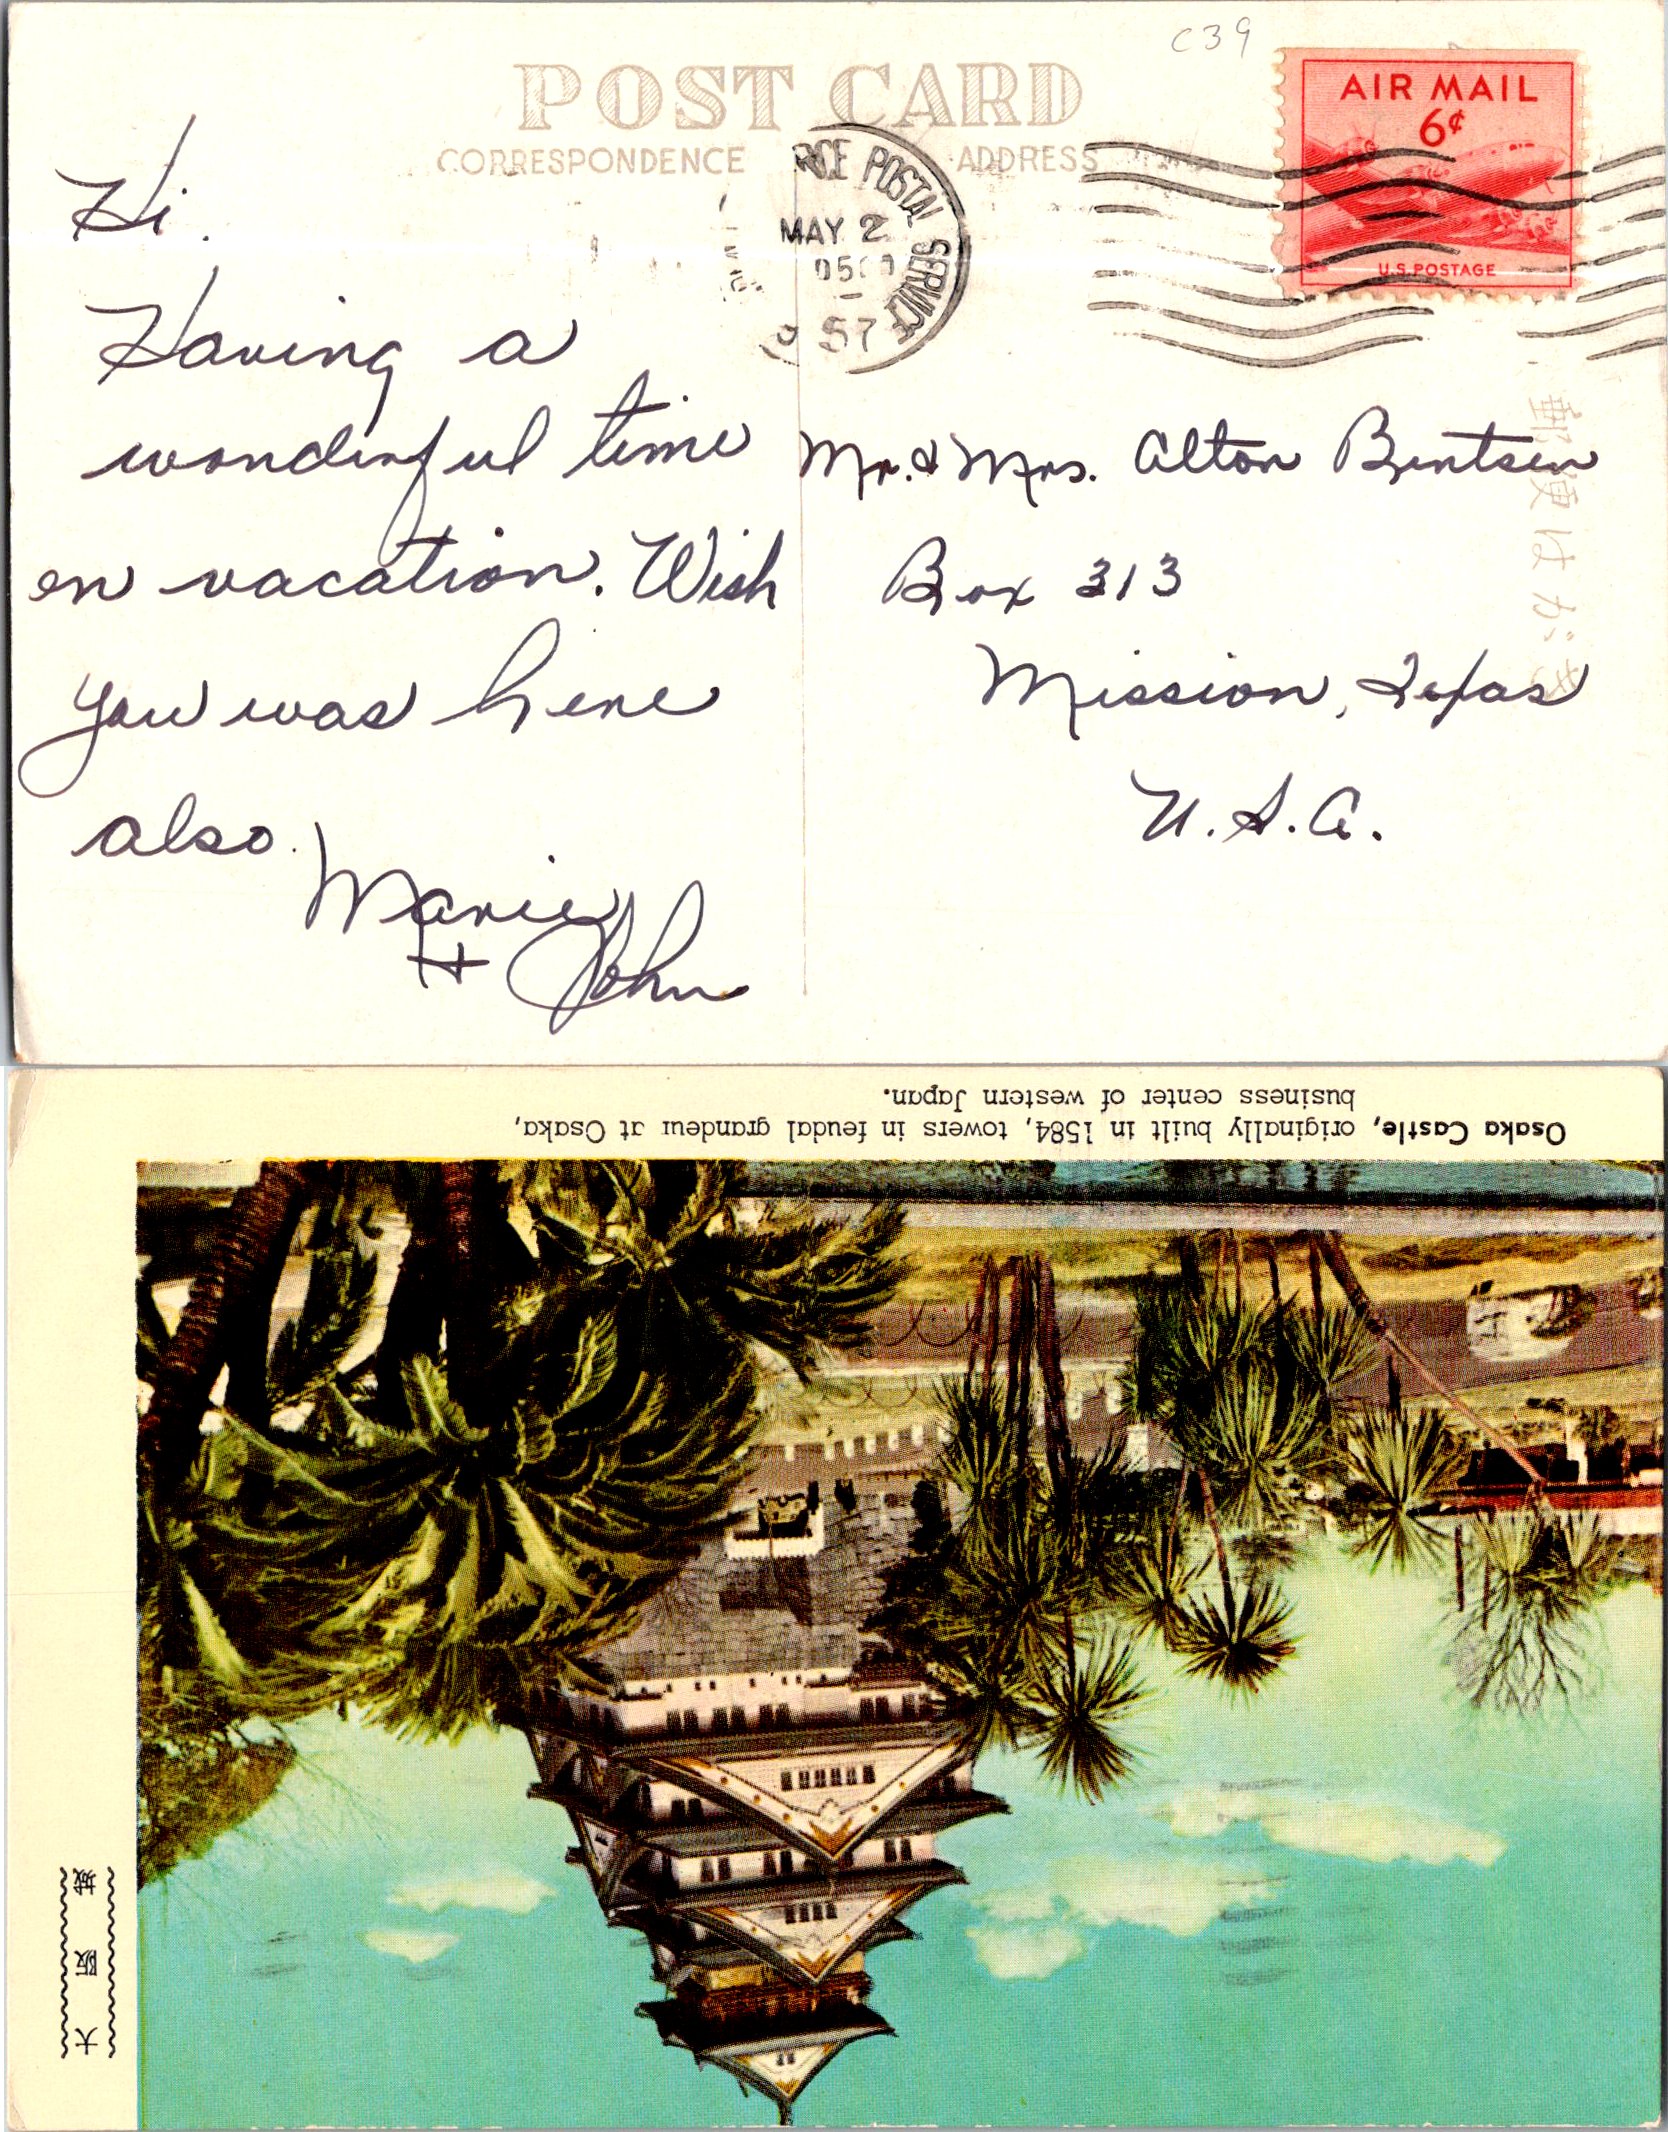 C39
POST CARD
CORRESPONDENCE
ADDRESS
AIR MAIL
6¢
U.S. POSTAGE
RCE POSTAL SERVICE
MAY 2
57
Hi.
Having a
wonderful time
on vacation. Wish
you was here
also.
Marie
+ John
Mr. & Mrs. Alton Bentsen
Box 313
Mission, Texas
U.S.A.
郵便はがき
Osaka Castle, originally built in 1584, towers in feudal grandeur at Osaka,
business center of western Japan.
大阪城